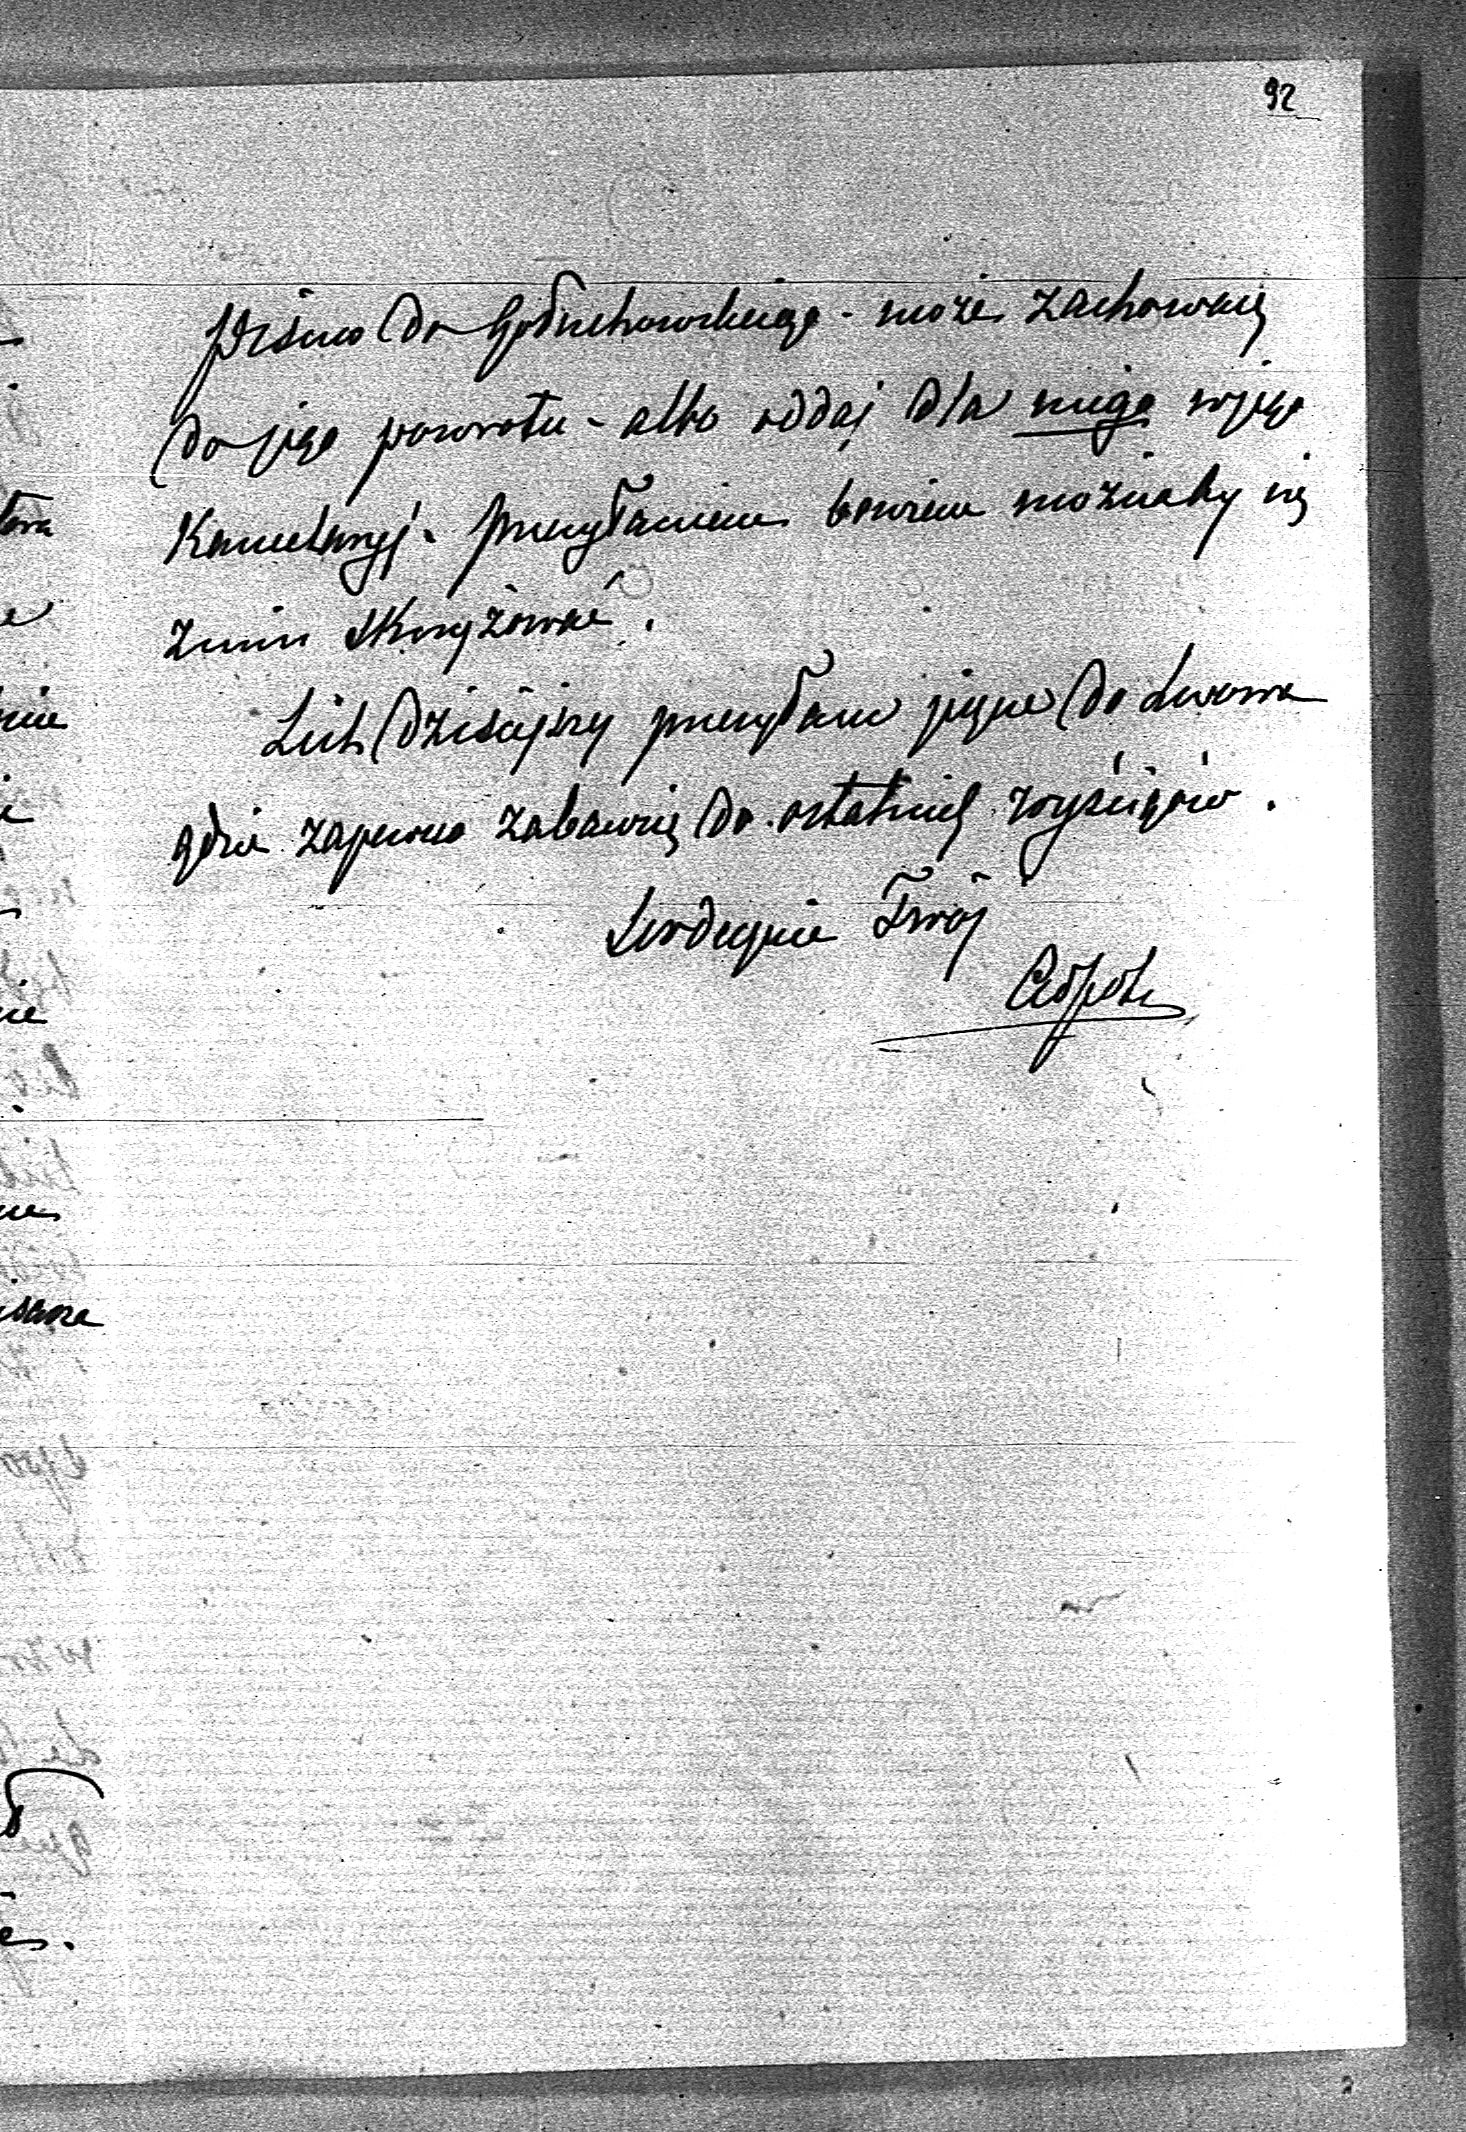 92
pismo do Gołuchowskiego - może zachowaj
do jego powrotu - albo oddaj dla niego w jego
Kancelaryj. przesyłaniem bowiem możnaby się
z nim skrzyżować.
List dzisiejszy przesyłam jeszcze do Lwowa
gdzie zapewne zabawię do ostatnich wyścigów.
Serdecznie Twój